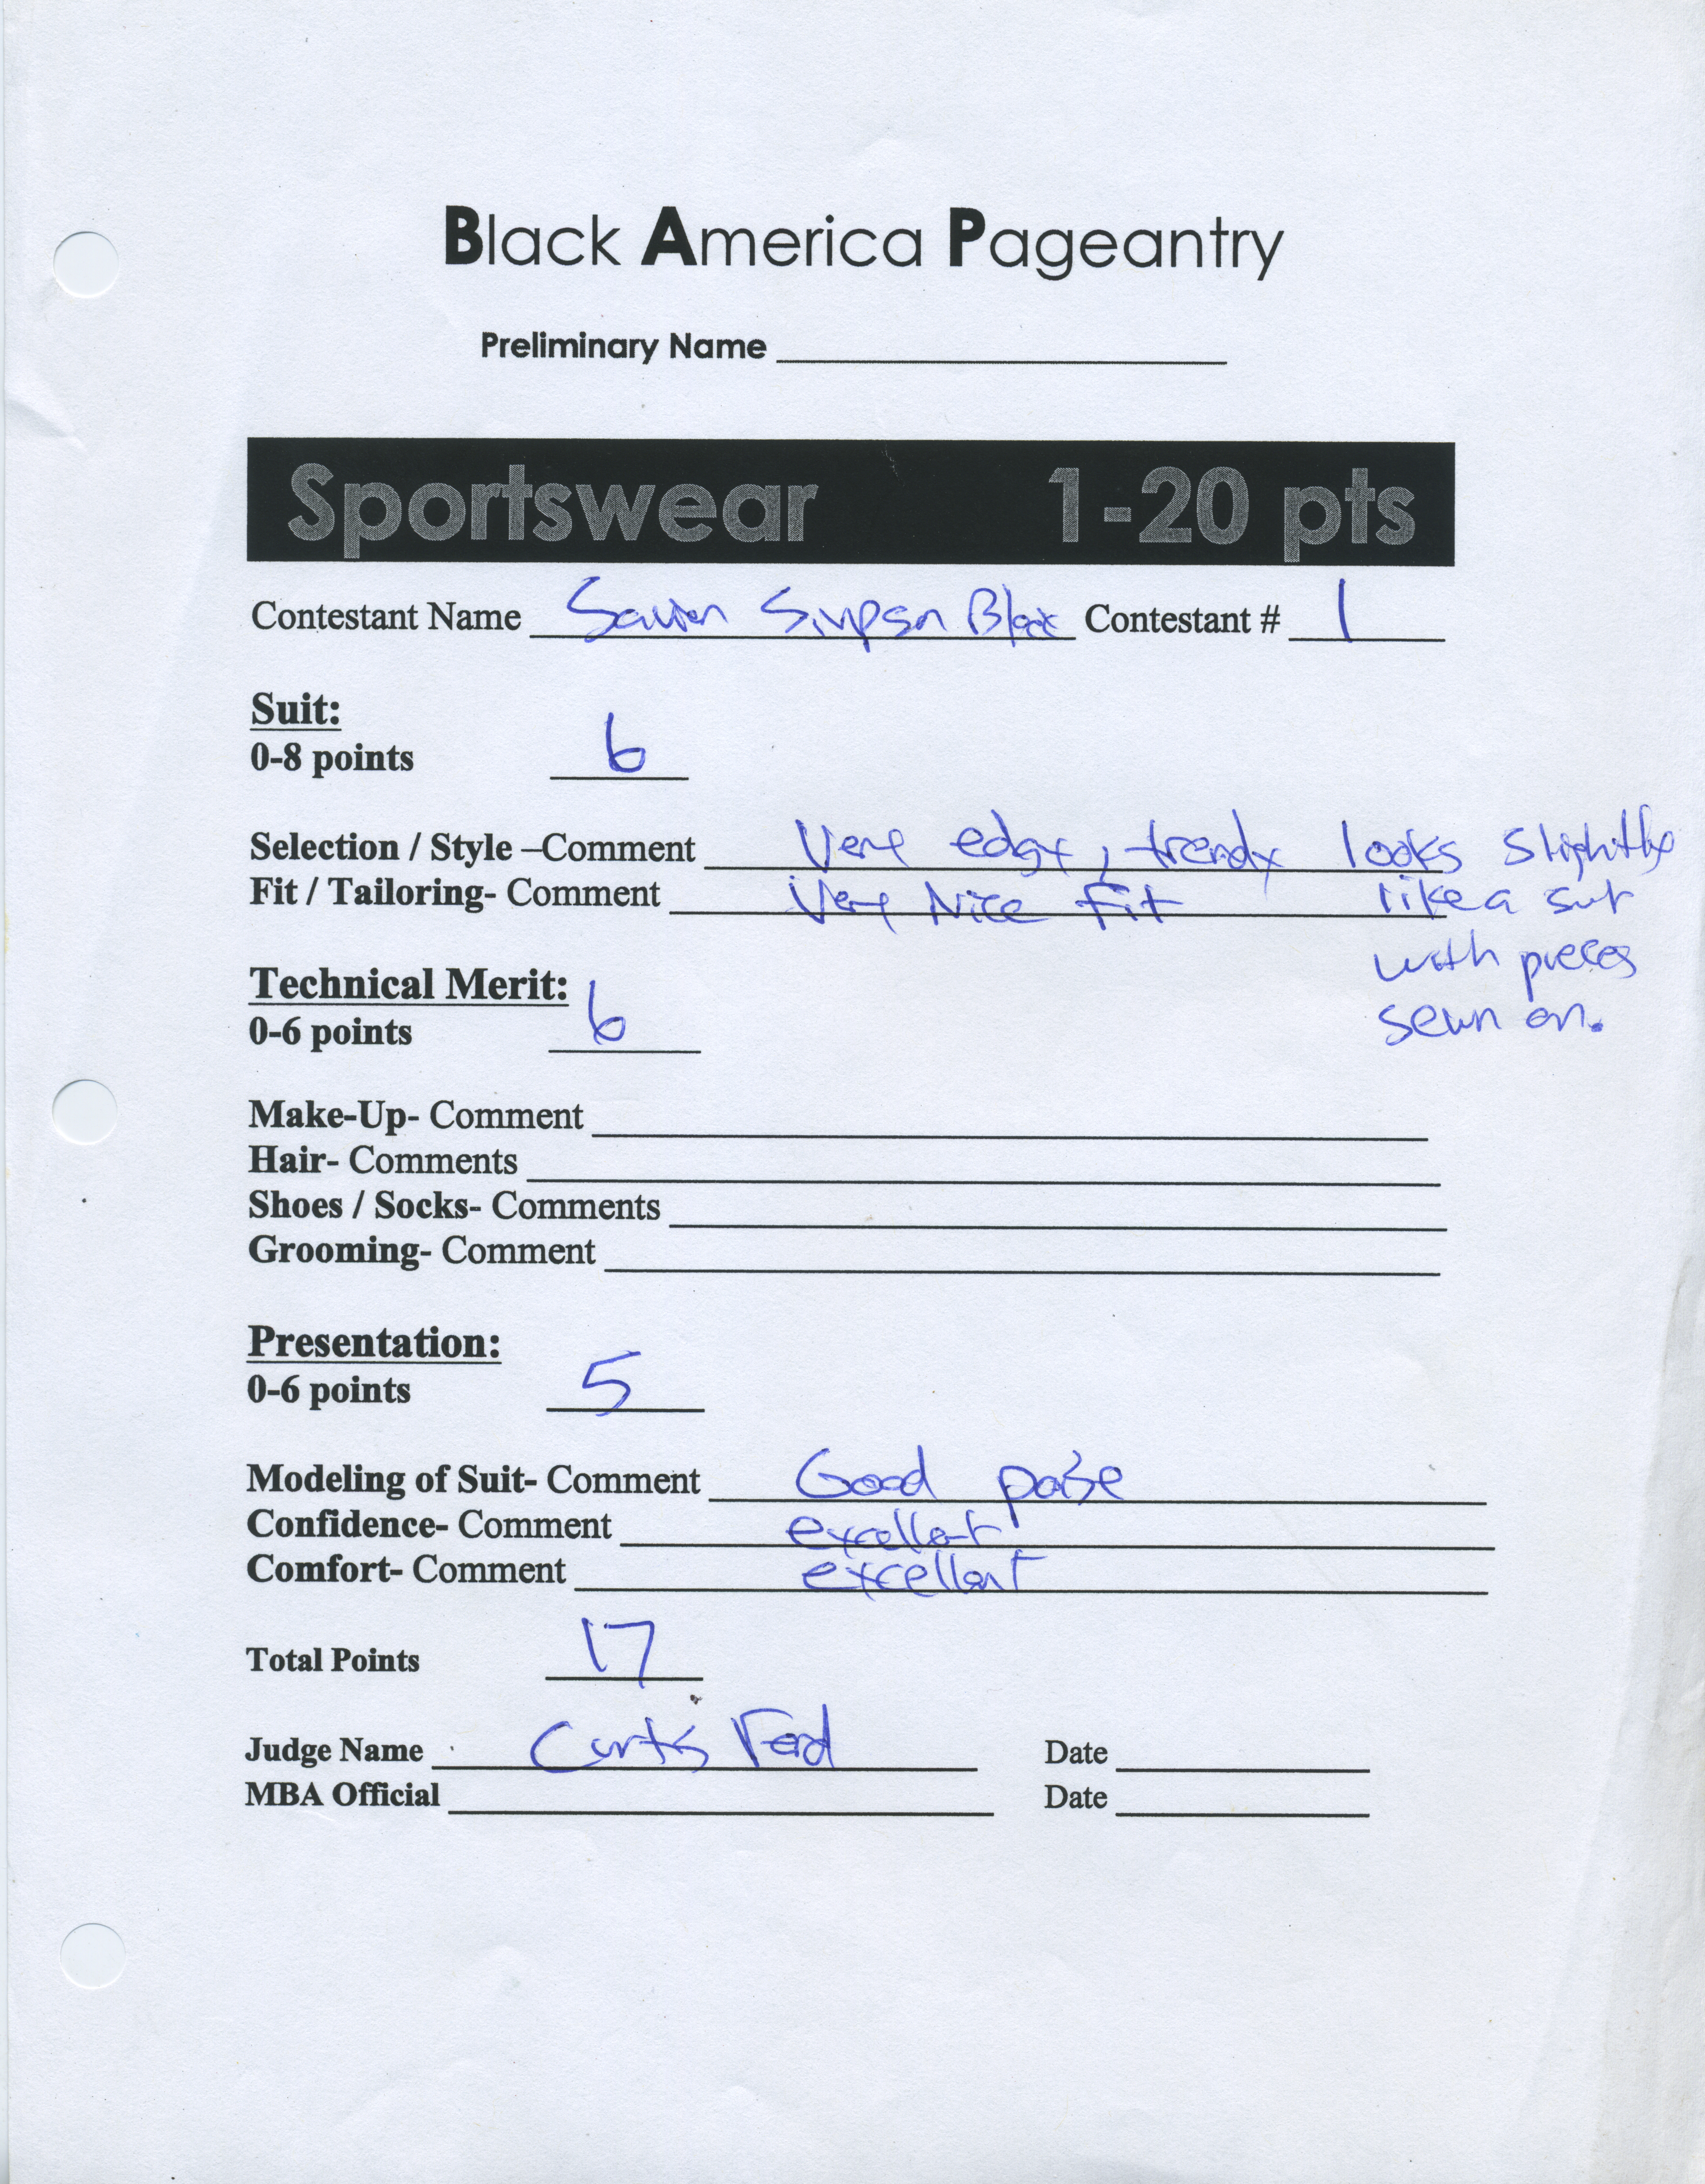 Black America Pageantry
Preliminary Name
Sportswear 1-20 pts
Contestant Name Simpson Contestant # 1
Suit:
0-8 points 6
Selection / Style –Comment Very edgy, trendy looks slightly
Fit / Tailoring- Comment Very Nice Fit like a suit
with pieces
Technical Merit:
sewn on.
0-6 points 6
Make-Up- Comment
Hair- Comments
Shoes / Socks- Comments
Grooming- Comment
Presentation:
0-6 points 5
Modeling of Suit- Comment Good poise
Confidence- Comment excellent
Comfort- Comment excellent
Total Points 17
Judge Name Curtis Ford Date
MBA Official Date